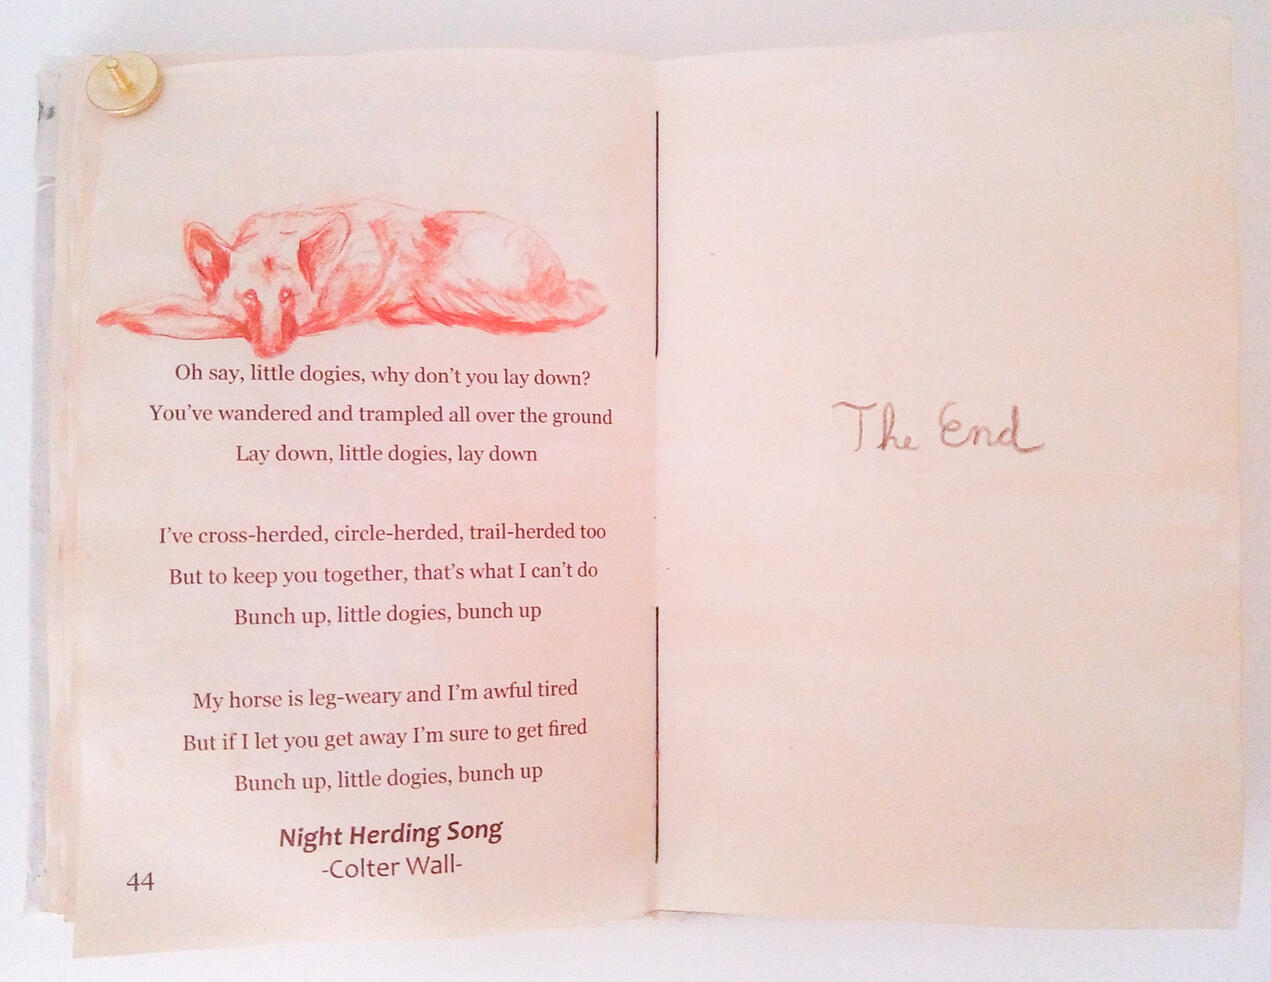 Oh say, little dogies, why don't you lay down?
You've wandered and trampled all over the ground
Lay down, little dogies, lay down
I've cross-herded, circle-herded, trail-herded too
But to keep you together, that's what I can't do
Bunch up, little dogies, bunch up
My horse is leg-weary and I'm awful tired
But if I let you get away I'm sure to get fired
Bunch up, little dogies, bunch up
Night Herding Song
-Colter Wall-
44
The End